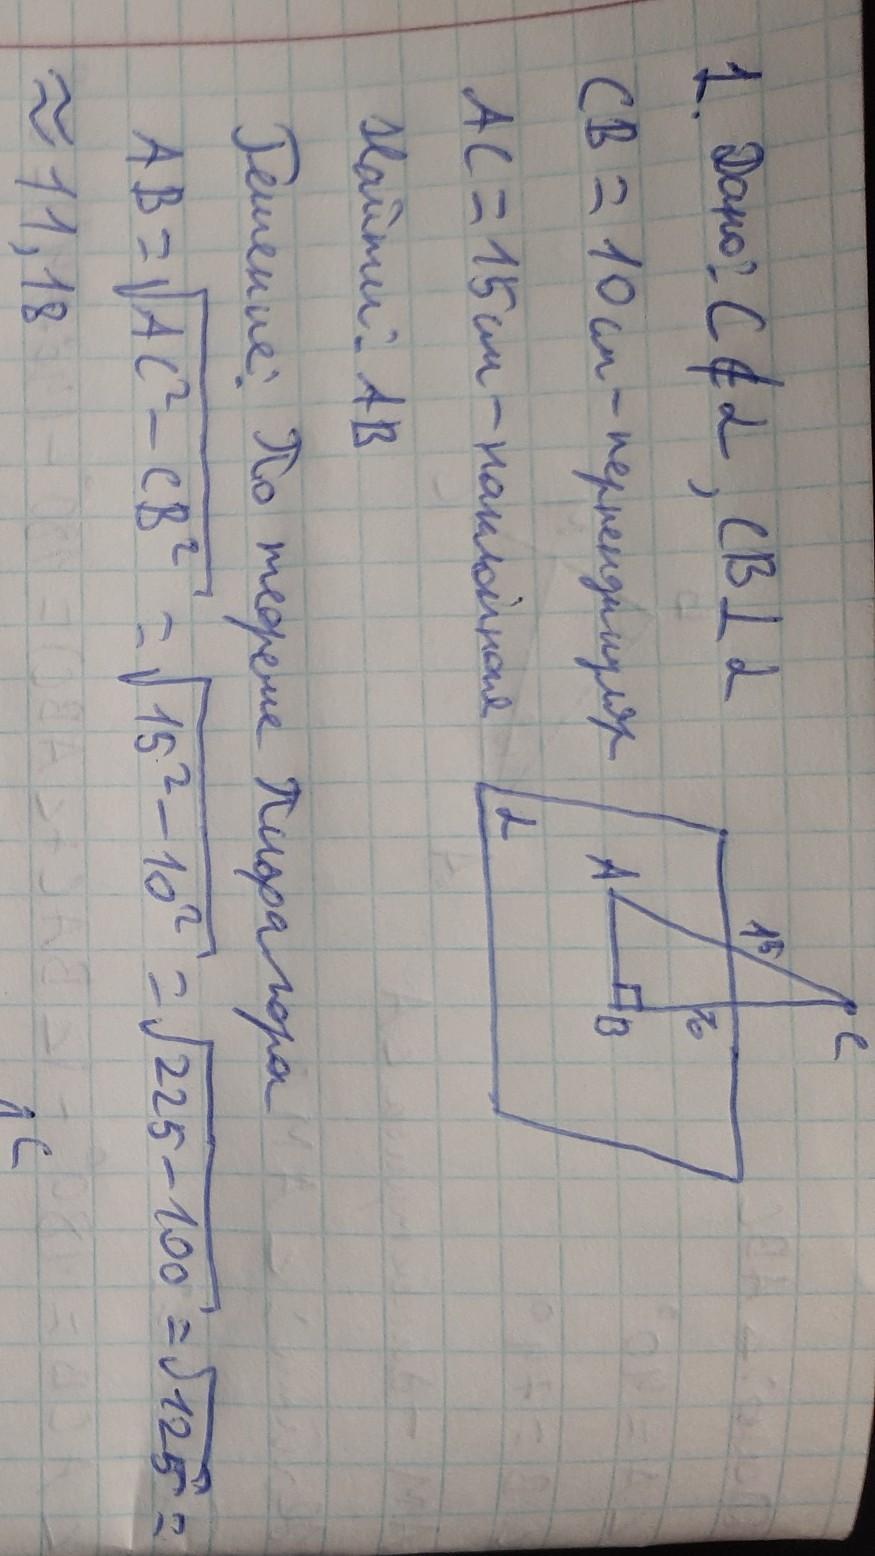 1. Дано: C ∉ α, CB ⊥ α
CB = 10 см – перпендикуляр
AC = 15 см – наклонная
Найти: AB
Решение: По теореме Пифагора
AB = √AC² – CB² = √15² – 10² = √225 – 100 = √125 =
≈ 11,18
C
15
10
A
B
α
C